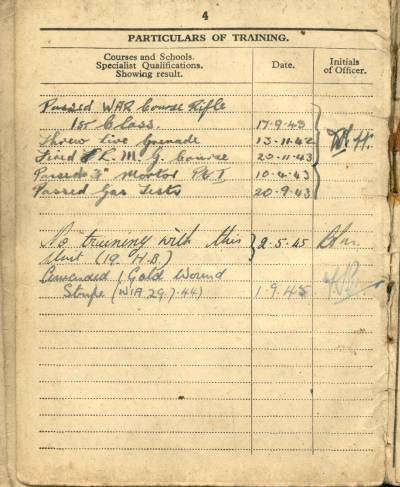 4
PARTICULARS OF TRAINING.
Courses and Schools. Specialist Qualifications. Showing result. Date. Initials of Officer.
Passed WAR Course Rifle
1st Class. 17-9-43
Threw Live Grenade 13-11-42
Fired L.M.G. Course 20-11-43
Passed 3" Mortor 10-4-43
Passed Gas Tests 20-9-43
No training with this 2.5.45
Unit (19 H.B.)
Awarded 1 Gold Wound
Stripe (WIA 29.7.44) 1.9.45